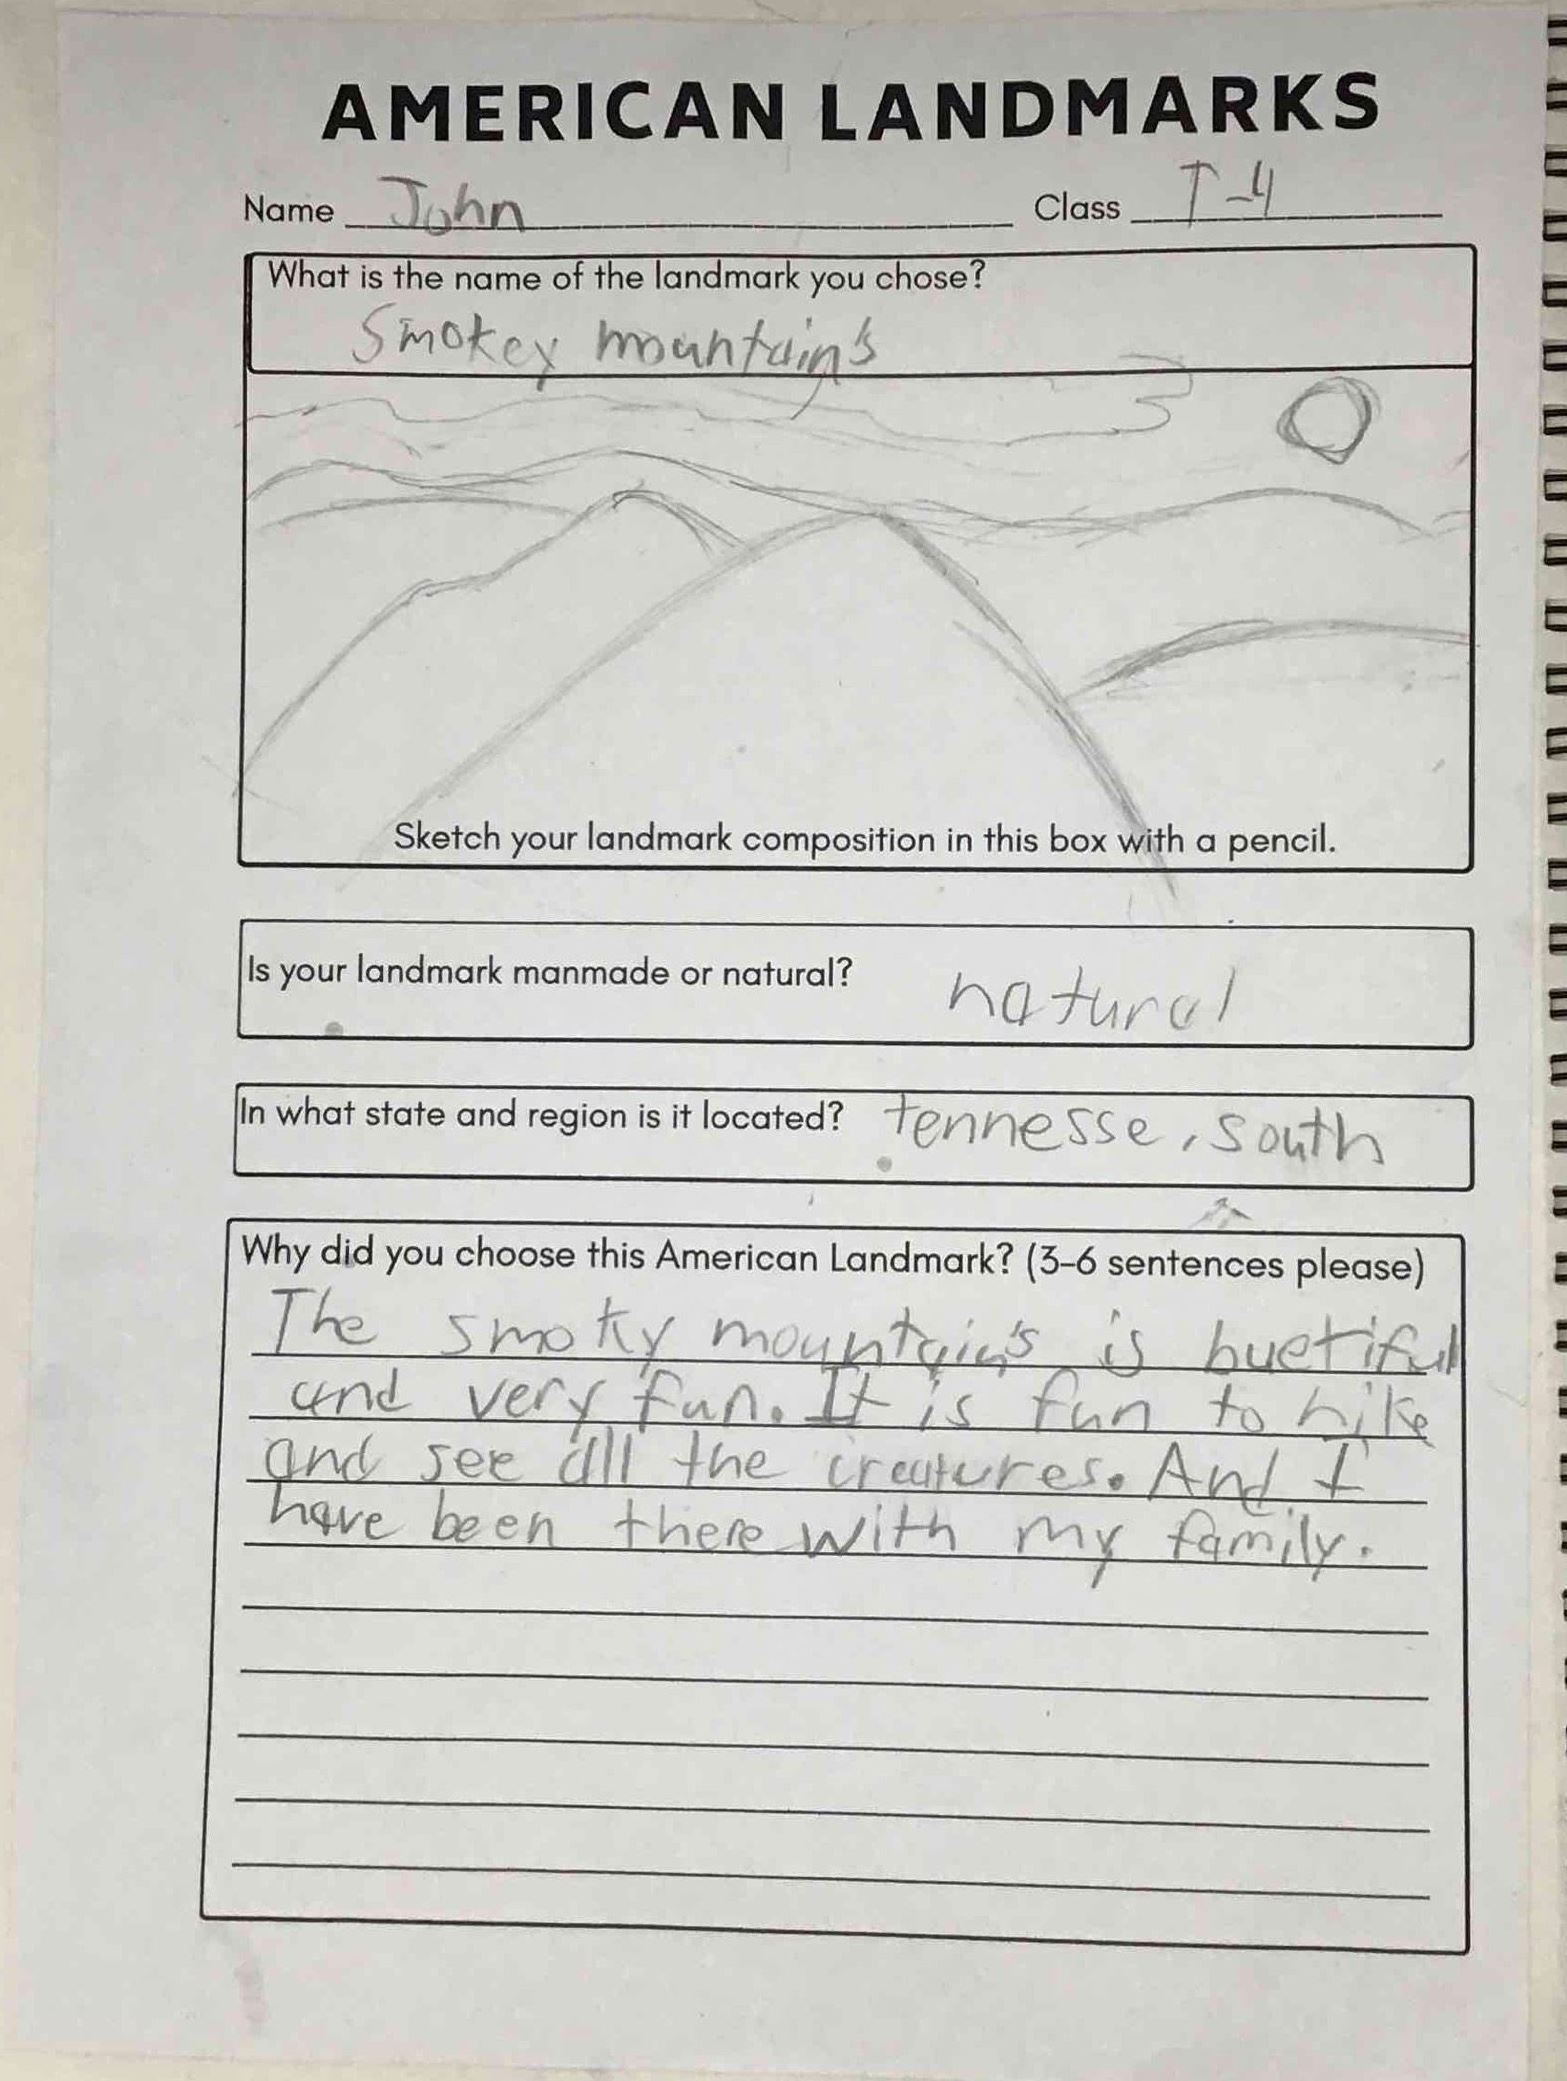 AMERICAN LANDMARKS
Name John Class T-4
What is the name of the landmark you chose?
Smokey mountain's
Sketch your landmark composition in this box with a pencil.
Is your landmark manmade or natural? natural
In what state and region is it located? tennesse, south
Why did you choose this American Landmark? (3-6 sentences please)
The smoky mountain's is buetiful
and very fun. It is fun to hike
and see all the creatures. And I
have been there with my family.